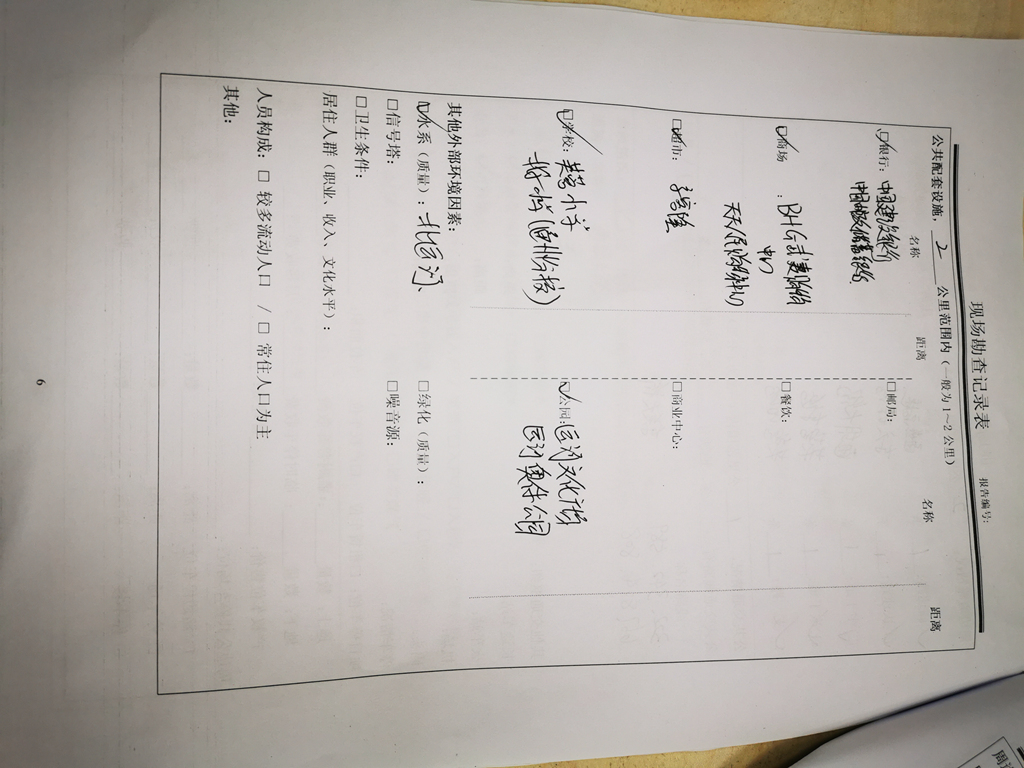 现场勘查记录表
报告编号:
公共配套设施, 2 公里范围内(一般为1~2公里)
名称 距离 名称 距离
☑银行: 中国建设银行 □邮局:
中国邮政储蓄银行
☑商场: BHG □餐饮:
中心
天天 购物中心
☑超市: □商业中心:
☑学校: 小学 ☑公园: 运河文化广场
(通州分校) 运河奥体公园
其他外部环境因素:
☑水系(质量): 北运河、 □绿化(质量):
□信号塔: □噪音源:
□卫生条件:
居住人群(职业、收入、文化水平):
人员构成: □ 较多流动人口 / □ 常住人口为主
其他:
6
周边